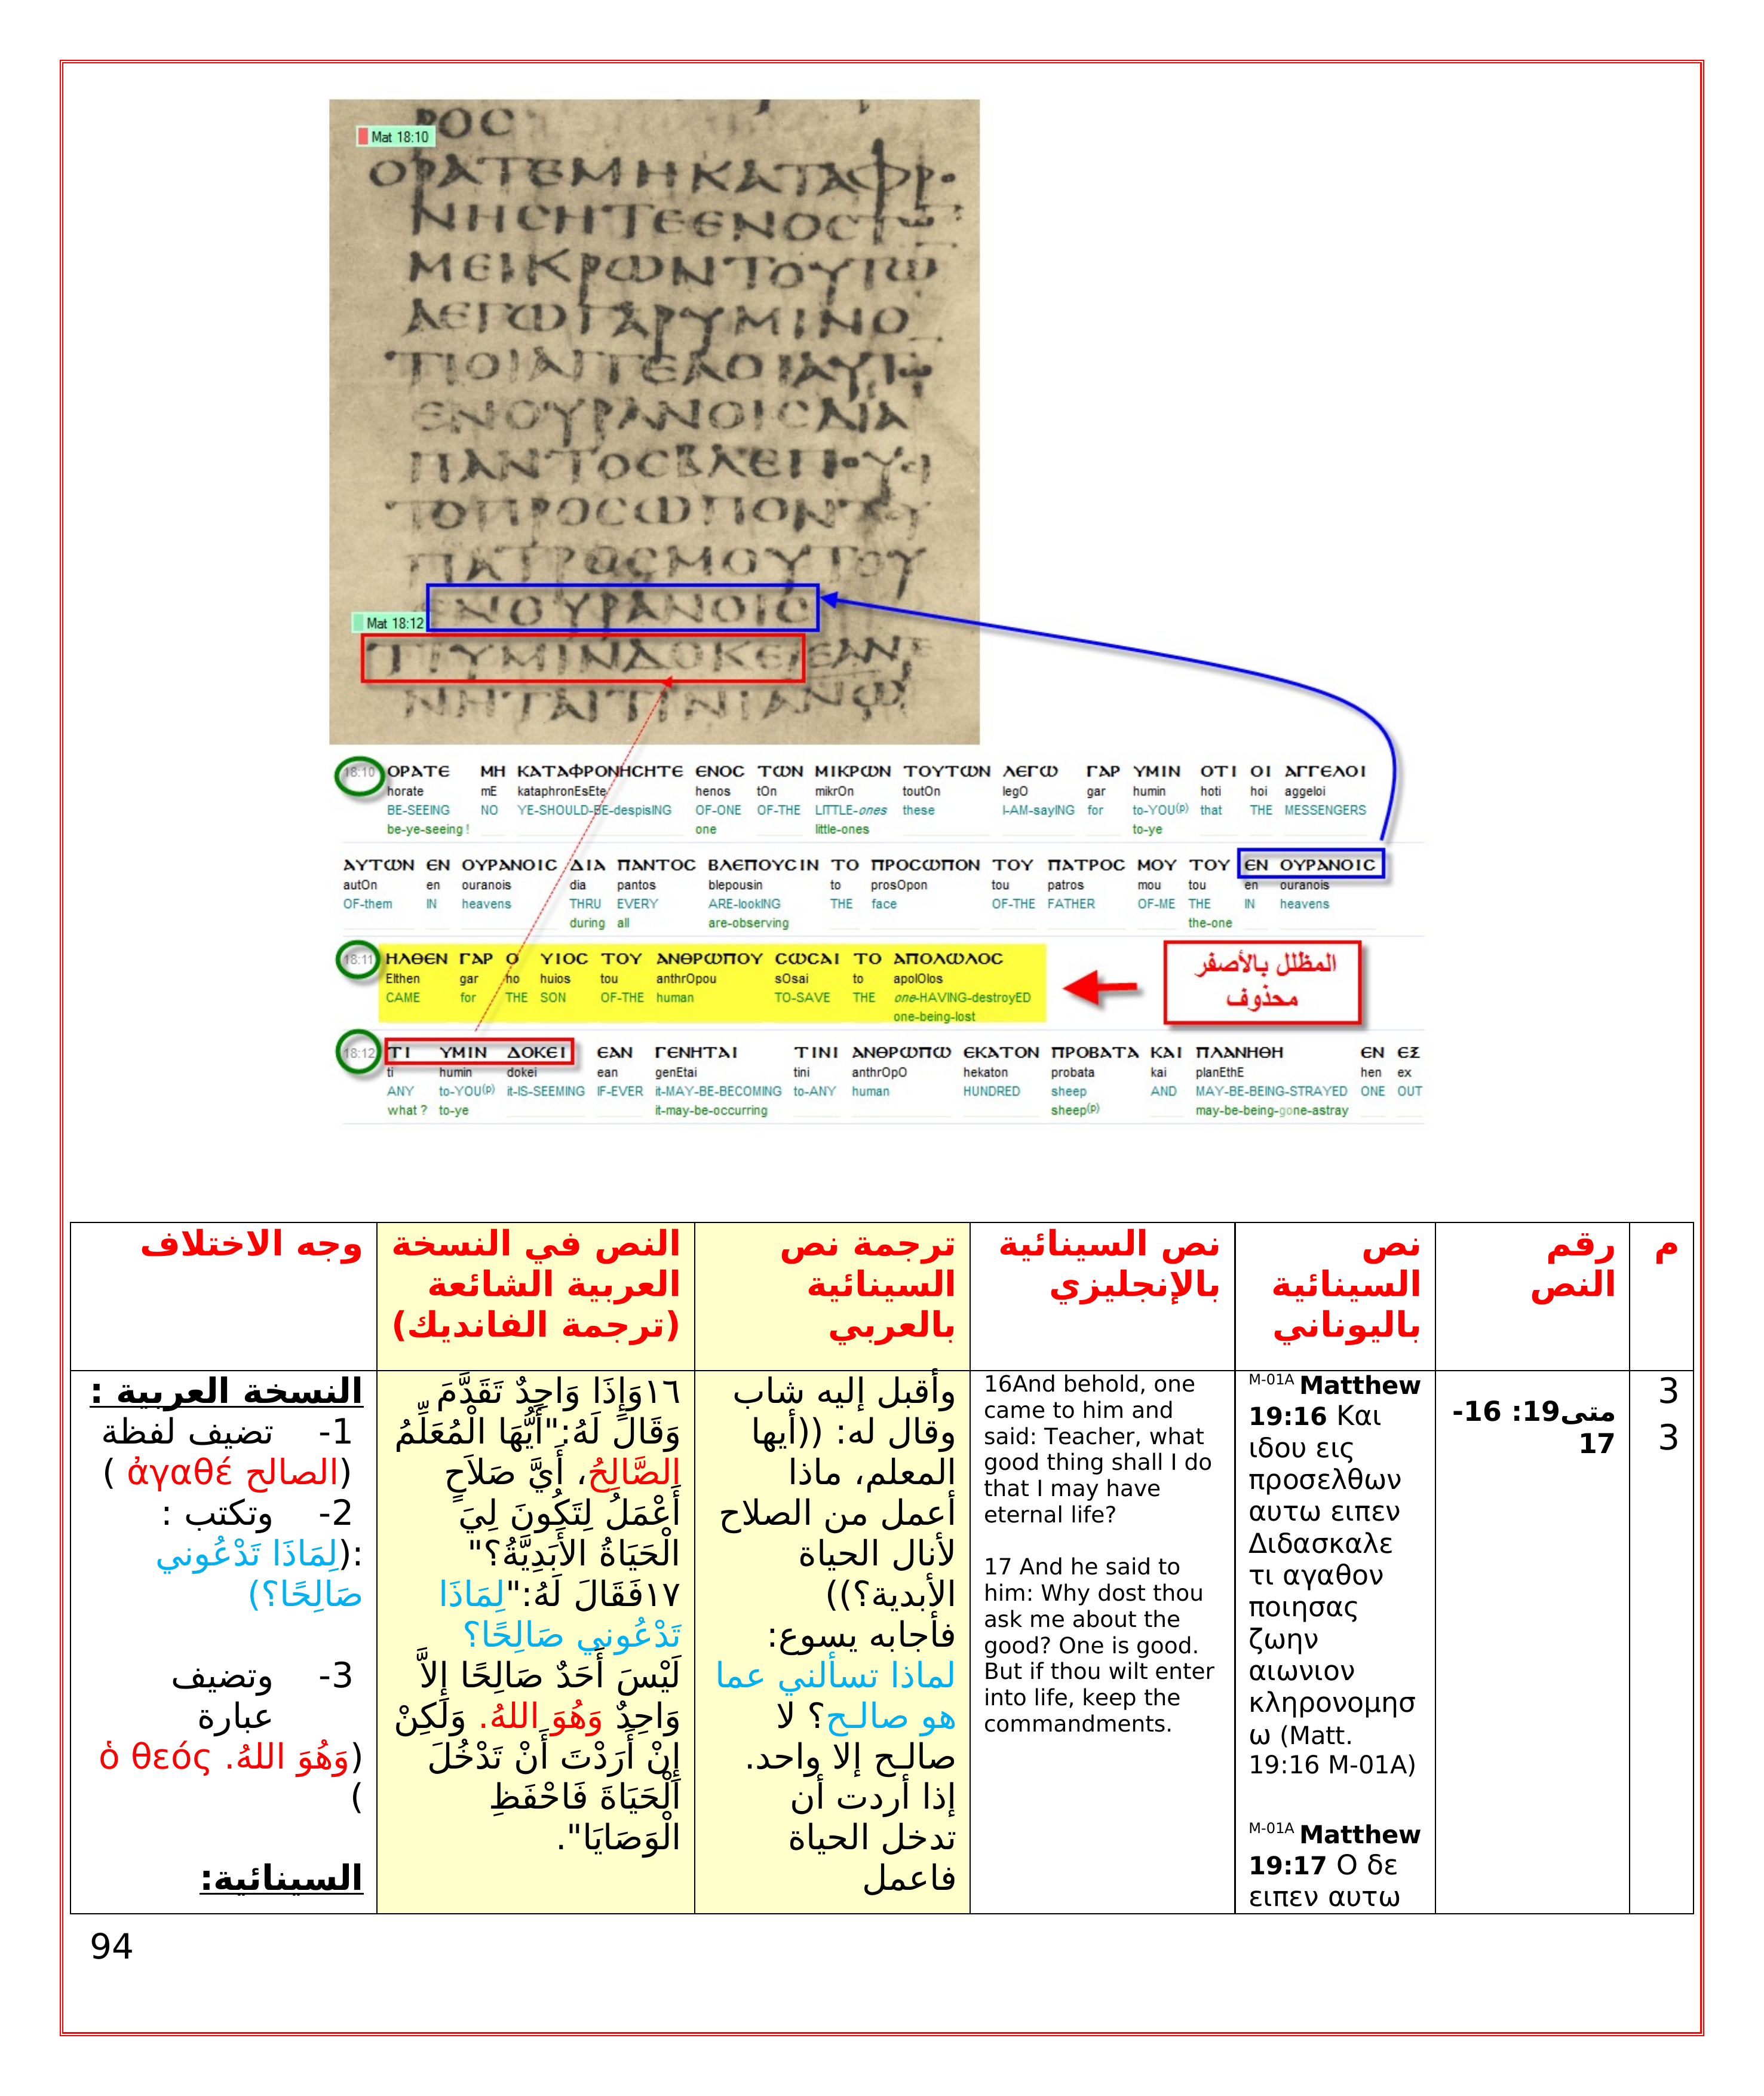 ΡΟC
Mat 18:10
ΟΡΑΤΕΜΗΚΑΤΑΦΡ
ΝΗCΗΤΕΕΝΟCΤ
ΜΕΙΚΡΩΝΤΟΥΤΩ
ΛΕΓΩΓΑΡΥΜΙΝΟ
ΤΙΟΙΑΓΓΕΛΟΙΑΥΤ
ΕΝΟΥΡΑΝΟΙCΔΙΑ
ΠΑΝΤΟCΒΛΕΠΟΥCΙ
ΤΟΠΡΟCΩΠΟΝΤΟΥ
ΠΑΤΡΟCΜΟΥΤΟΥ
ΕΝΟΥΡΑΝΟΙC
Mat 18:12
ΤΙΥΜΙΝΔΟΚΕΙΕΑΝΓΕ
ΝΗΤΑΙΤΙΝΙΑΝΩ
18:10 ΟΡΑΤΕ ΜΗ ΚΑΤΑΦΡΟΝΗCΗΤΕ ΕΝΟC ΤΩΝ ΜΙΚΡΩΝ ΤΟΥΤΩΝ ΛΕΓΩ ΓΑΡ ΥΜΙΝ ΟΤΙ ΟΙ ΑΓΓΕΛΟΙ
horate mE kataphronEsEte henos tOn mikrOn toutOn legO gar humin hoti hoi aggeloi
BE-SEEING NO YE-SHOULD-BE-despisING OF-ONE OF-THE LITTLE-ones these I-AM-sayING for to-YOU(p) that THE MESSENGERS
be-ye-seeing ! one little-ones to-ye
ΑΥΤΩΝ ΕΝ ΟΥΡΑΝΟΙC ΔΙΑ ΠΑΝΤΟC ΒΛΕΠΟΥCΙΝ ΤΟ ΠΡΟCΩΠΟΝ ΤΟΥ ΠΑΤΡΟC ΜΟΥ ΤΟΥ ΕΝ ΟΥΡΑΝΟΙC
autOn en ouranois dia pantos blepousin to prosOpon tou patros mou tou en ouranois
OF-them IN heavens THRU EVERY ARE-lookING THE face OF-THE FATHER OF-ME THE IN heavens
during all are-observing the-one
18:11 ΗΛΘΕΝ ΓΑΡ Ο ΥΙΟC ΤΟΥ ΑΝΘΡΩΠΟΥ CΩCΑΙ ΤΟ ΑΠΟΛΩΛΟC
Elthen gar ho huios tou anthrOpou sOsai to apolOlos
CAME for THE SON OF-THE human TO-SAVE THE one-HAVING-destroyED
one-being-lost
المظلل بالأصفر
محذوف
18:12 ΤΙ ΥΜΙΝ ΔΟΚΕΙ ΕΑΝ ΓΕΝΗΤΑΙ ΤΙΝΙ ΑΝΘΡΩΠΩ ΕΚΑΤΟΝ ΠΡΟΒΑΤΑ ΚΑΙ ΠΛΑΝΗΘΗ ΕΝ ΕΞ
ti humin dokei ean genEtai tini anthrOpO hekaton probata kai planEthE hen ex
ANY to-YOU(p) it-IS-SEEMING IF-EVER it-MAY-BE-BECOMING to-ANY human HUNDRED sheep AND MAY-BE-BEING-STRAYED ONE OUT
what ? to-ye it-may-be-occurring sheep(p) may-be-being-gone-astray
م
رقم
النص
نص
السينائية
باليوناني
نص السينائية
بالإنجليزي
ترجمة نص
السينائية
بالعربي
النص في النسخة
العربية الشائعة
(ترجمة الفانديك)
وجه الاختلاف
3
3
متى19: 16-
17
M-01A Matthew
19:16 Και
ιδου εις
προσελθων
αυτω ειπεν
Διδασκαλε
τι αγαθον
ποιησας
ζωην
αιωνιον
κληρονομησ
ω (Matt.
19:16 M-01A)
M-01A Matthew
19:17 Ο δε
ειπεν αυτω
16And behold, one
came to him and
said: Teacher, what
good thing shall I do
that I may have
eternal life?
17 And he said to
him: Why dost thou
ask me about the
good? One is good.
But if thou wilt enter
into life, keep the
commandments.
وأقبل إليه شاب
وقال له: ((أيها
المعلم، ماذا
أعمل من الصلاح
لأنال الحياة
الأبدية؟))
فأجابه يسوع:
لماذا تسألني عما
هو صالـح؟ لا
صالـح إلا واحد.
إذا أردت أن
تدخل الحياة
فاعمل
١٦وَإِذَا وَاحِدٌ تَقَدَّمَ
وَقَالَ لَهُ:"أَيُّهَا الْمُعَلِّمُ
الصَّالِحُ، أَيَّ صَلاَحٍ
أَعْمَلُ لِتَكُونَ لِيَ
الْحَيَاةُ الأَبَدِيَّةُ؟"
١٧فَقَالَ لَهُ:"لِمَاذَا
تَدْعُوني صَالِحًا؟
لَيْسَ أَحَدٌ صَالِحًا إِلاَّ
وَاحِدٌ وَهُوَ اللهُ. وَلَكِنْ
إِنْ أَرَدْتَ أَنْ تَدْخُلَ
الْحَيَاةَ فَاحْفَظِ
الْوَصَايَا".
النسخة العربية :
1- تضيف لفظة
(الصالح ἀγαθέ )
2- وتكتب :
:(لِمَاذَا تَدْعُوني
صَالِحًا؟)
3- وتضيف
عبارة
(وَهُوَ اللهُ. ὁ θεός
)
السينائية:
94